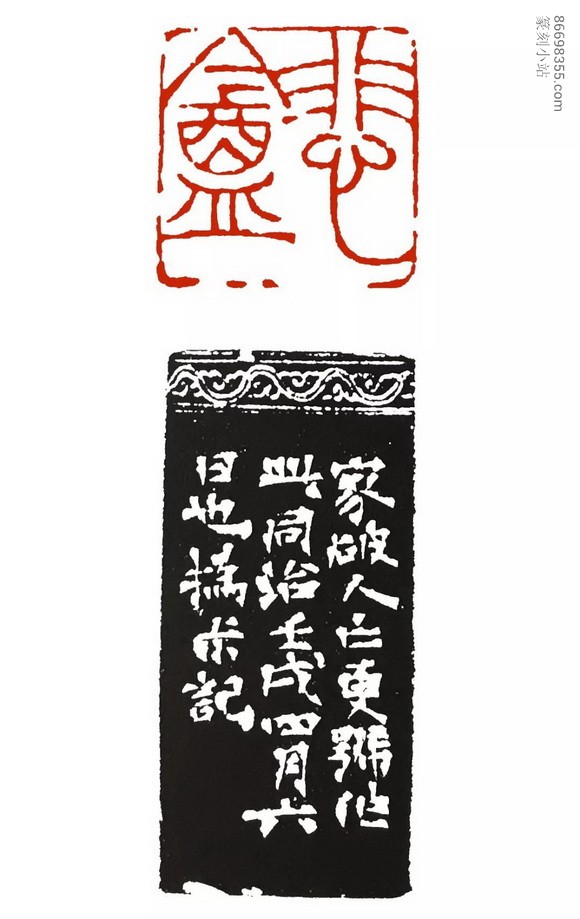 86698355.com
篆刻小站
悲盦
家破人亡更號作
此同治壬戌四月六
日也撝叔記